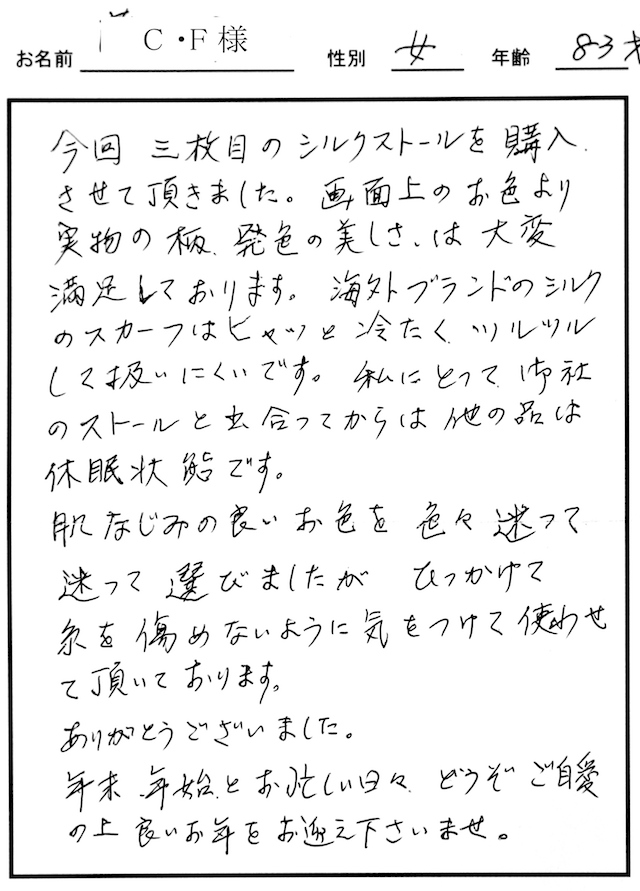 お名前 C・F様 性別 女 年齢 83才
今回 三枚目のシルクストールを購入
させて頂きました。画面上のお色より
実物の柄、発色の美しさ、は大変
満足しております。海外ブランドのシルク
のスカーフはヒャッと冷たく、ツルツル
して扱いにくいです。私にとって、御社
のストールと出合ってからは他の品は
休眠状態です。
肌なじみの良いお色を 色々迷って
迷って選びましたが ひっかけて
糸を傷めないように気をつけて使わせ
て頂いております。
ありがとうございました。
年末、年始、とお忙しい日々、どうぞご自愛
の上 良いお年をお迎え下さいませ。